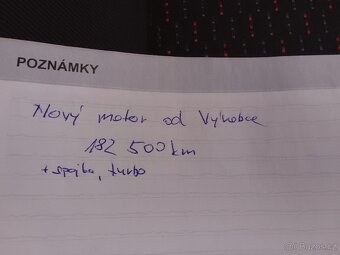 POZNÁMKY
Nový motor od Výrobce
182 500 km
+ spojka, turbo
Bazos.cz